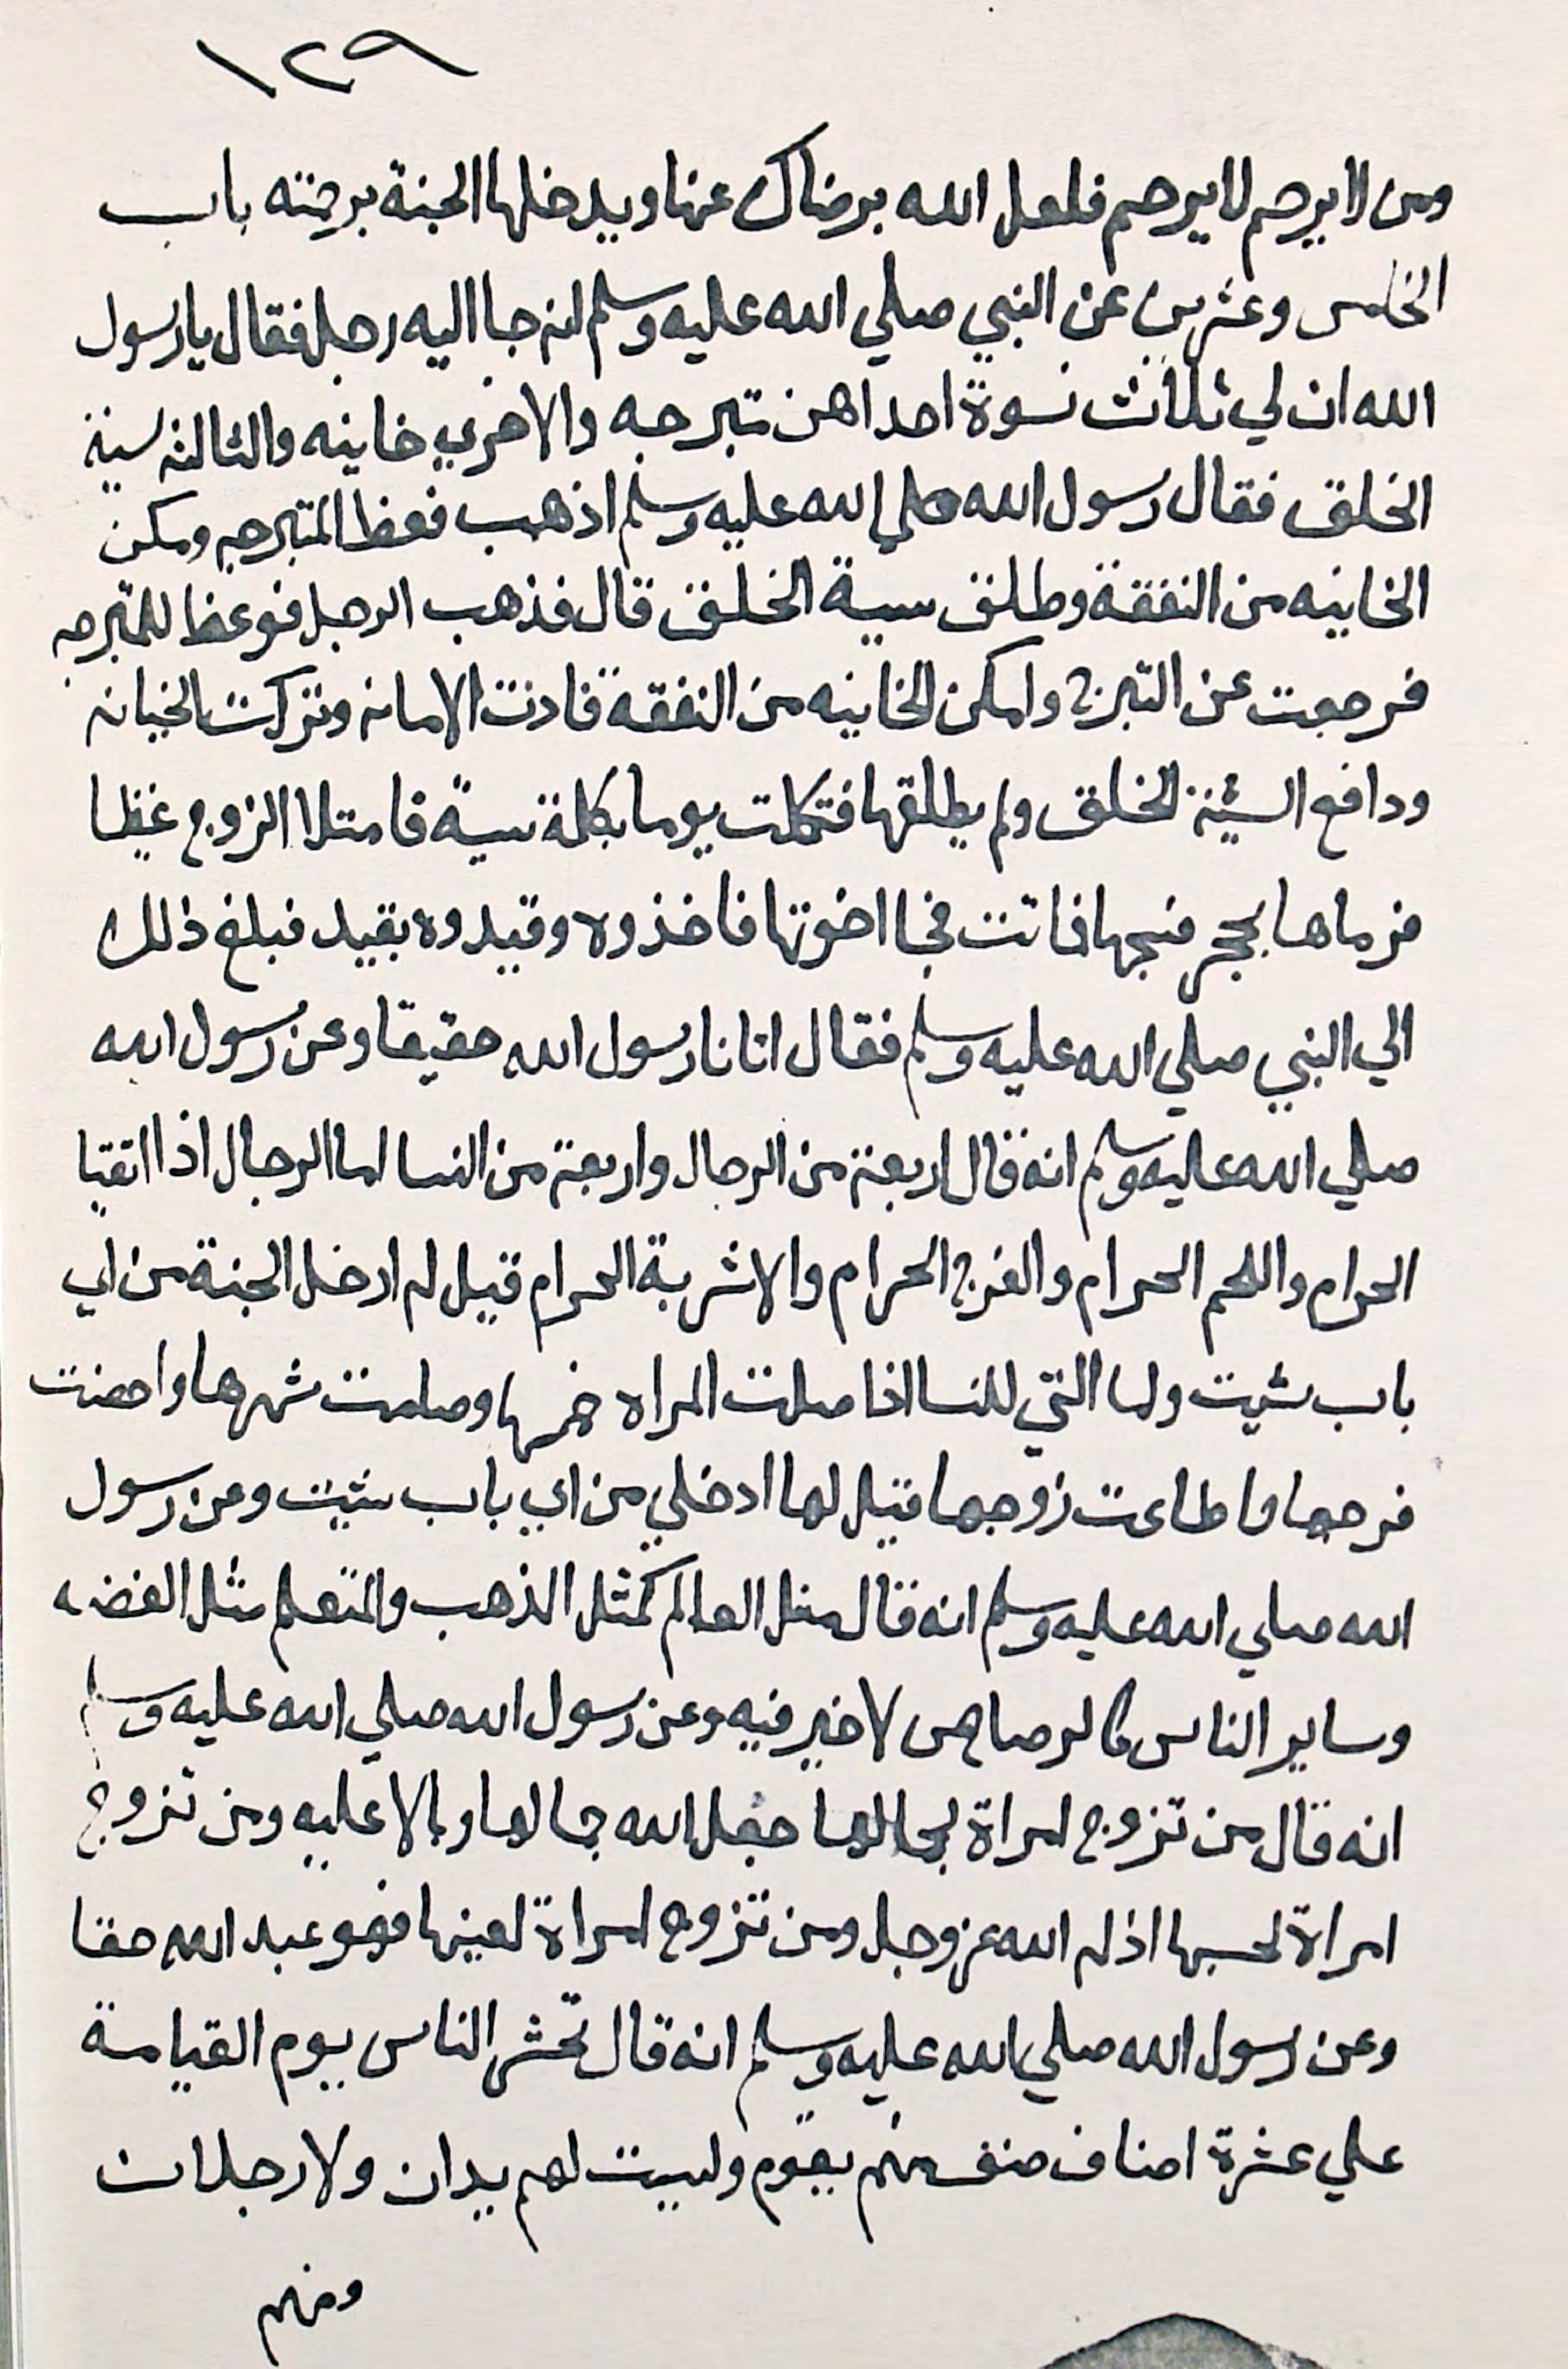 ١٢٩
ومن لا يرحم لا يرحم فلعل الله برضاك عنها ويدخلها الجنة برحمته باب
الخامس وعشرين عن النبي صلي الله عليه وسلم انه جا اليه رجل فقال يا رسول
الله ان لي ثلاث نسوة احداهن متبرجه والاخري خاينه والثالثه سيئة
الخلق فقال رسول الله صلي الله عليه وسلم اذهب فعظ المتبرجه ومكن
الخاينه من النفقة وطلق سية الخلق قال فذهب الرجل فوعظ للمتبرجه
فرجعت عن التبرج وامكن الخاينه من النفقة فادت الامانه وتركت الخيانه
ودافع السئية الخلق ولم يطلقها فتكلمت يوما بكلمة سية فامتلا الزوج غيظا
فرماها بحجر فشجها فماتت فجا اخوتها فاخذوه وقيدوه بقيد فبلغ ذلك
الي النبي صلي الله عليه وسلم فقال انا نا رسول الله حقيقا وعن رسول الله
صلي الله عليه وسلم انه قال اربعة من الرجال واربعة من النسا اما الرجال اذا اتقيا
الحرام واللحم الحرام والفرج الحرام والاشربة الحرام قيل له ادخل الجنة من اي
باب شيت واما التي للنسا اذا صلت المراه خمسها وصامت شهرها واحصنت
فرجها واطاعت زوجها قيل لها ادخلي من اي باب شيت وعن رسول
الله صلي الله عليه وسلم انه قال مثل العالم كمثل الذهب والمتعلم مثل الفضه
وساير الناس كالرصاص لا خير فيه وعن رسول الله صلي الله عليه وسلم
انه قال من تزوج امراة لجمالها جعل الله جمالها وبالا عليه ومن تزوج
امراة لحسبها اذله الله عز وجل ومن تزوج امراة لعينها فهو عبد الله حقا
وعن رسول الله صلي الله عليه وسلم انه قال تحشر الناس يوم القيامة
علي عشرة اصناف صنف منهم يقوم وليست لهم يدان ولا رجلان
ومنهم